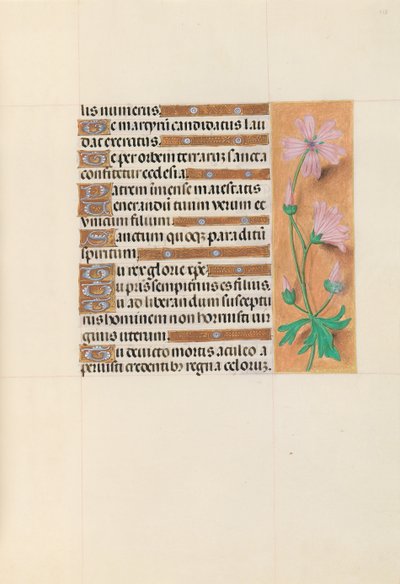 lis numerus.
Te martyrũ candidatus lau
dat exercitus.
Te per orbem terrarus sancta
confitetur ecclesia.
Patrem inmense maiestatis
Venerandũ tuum verum et
vnicum filium.
Sanctum quoqz paraditũ
spiritum.
Tu rex glorie xp̃e.
Tu pr̃is sempiternus es filius.
Tu ad liberandum suscepturus
hominem non horruisti vir
ginis uterum.
Tu deuicto mortis aculeo a
peruisti credentibz regna celoruz.